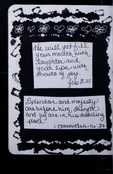 He will yet fill
your mouth with
laughter and
your lips with
shouts of joy.
Job 8:21
Splendor and majesty
are before him; strength
and joy are in his dwelling
place.
1 Chronicles 16:27